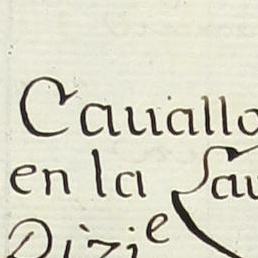 Cauallo
en la Sau
Dizie